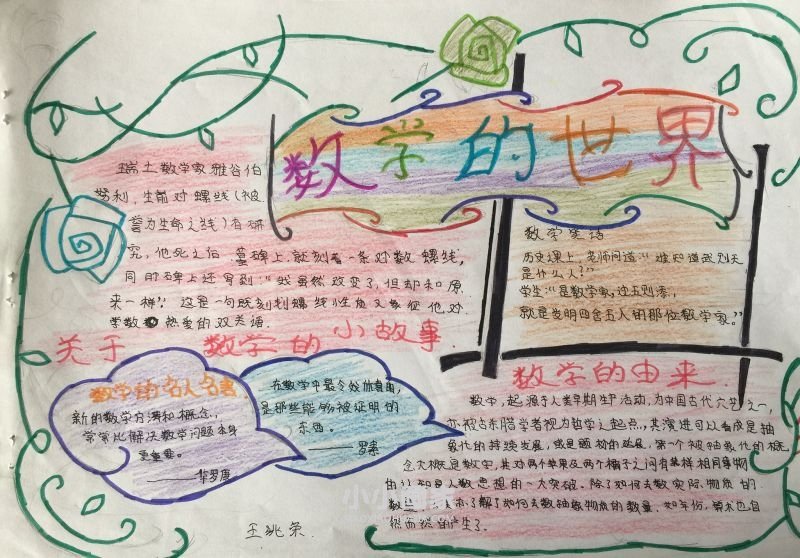 数学的世界
瑞士数学家雅谷伯
努利,生前对螺线(被
誉为生命之线)有研
究,他死之后,墓碑上,就刻着一条对数螺线,
同时碑上还写到:“我虽然改变了,但却和原
来一样”。这是一句既刻划螺线性质又象征他对
学数热爱的双关语.
关于数学的小故事.
数学笑话
历史课上,老师问道:“谁知道武则天
是什么人?”
学生:“是数学家,
就是发明四舍五入的那位数学家。”
数学的由来
数学,起源于人类早期生产活动,为中国古代六艺之一,
亦被古希腊学者视为哲学之起点,其演进可以看成是抽
象化的持续发展,或是题材的延展,第一个被抽象化的概
念大概是数字,其对两个苹果及两个橘子之间有某样相同事物
的认知是人类思想的一大突破。除了如何去数实际物质的
数量,亦了解了如何去数抽象物质的数量,如年份,算术也自
然而然的产生了.
数学的名人名言
新的数学方法和概念,
常常比解决数学问题本身
更重要。
——华罗庚
在数学中最令我欣喜的,
是那些能够被证明的
东西。
——罗素
小小画家
王兆荣